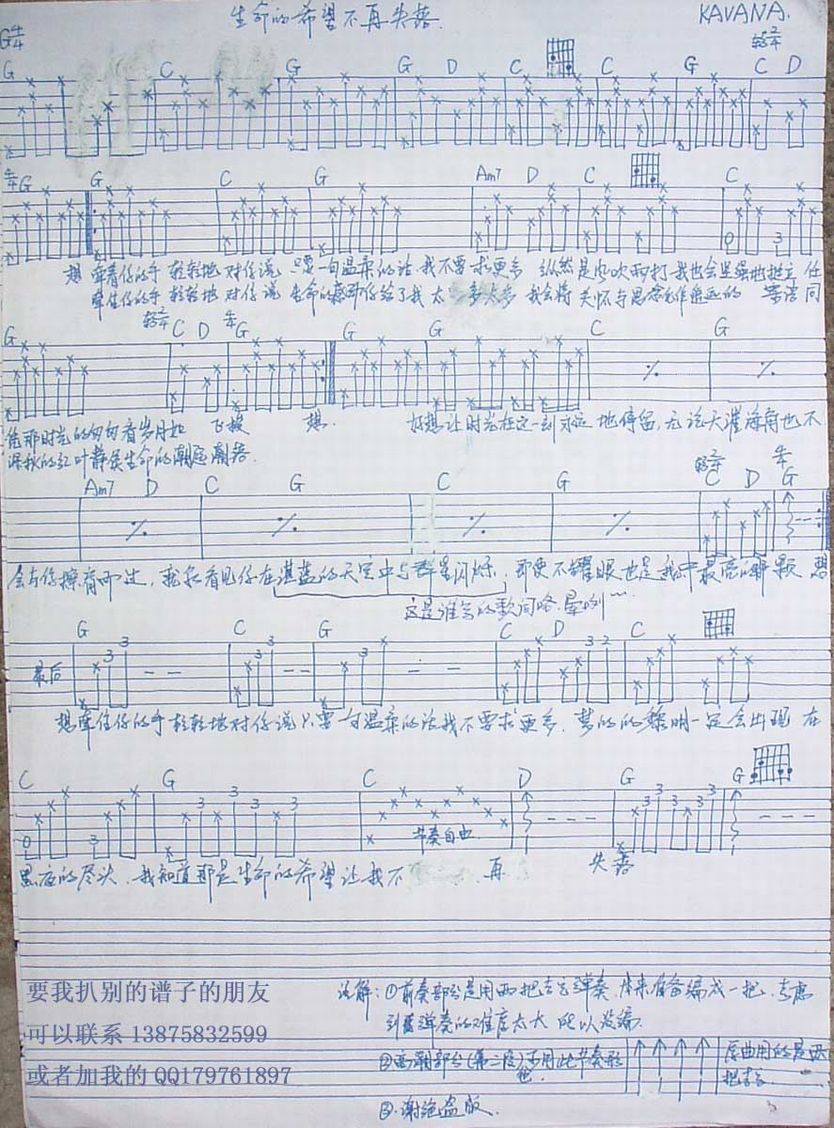 生命的希望不再失落
KAVANA.
G 4/4
轻 2/4
G C G G D C C G C D
4/4 G G C G Am7 D C C
想 牵着你的手 轻轻地 对你说 只要一句温柔的话 我不要求更多 纵然是风吹雨打 我也会坚强地挺立 任
牵住你的手 轻轻地 对你说 生命的 你给了我太多太多 我会将 关怀与思念 永远的
轻 2/4 4/4
G C D G G G C G
凭那时光的匆匆 看岁月如 飞梭 想
好想让时光在这一刻永远 地停留, 无论天涯海角也不
深秋的红叶 静 生命的潮起潮落.
轻 2/4 4/4
Am7 D C G C G C D G
会与你擦肩而过, 我看见你在湛蓝的天空中与群星闪烁, 即使不耀眼也是我 中最亮的 颗 想
这是谁写的歌词咯.晕咧~~
G C G C D C
最后
想牵住你的手 轻轻地对你说 只要 句温柔的话 我不要求更多. 梦 的黎明一定会出现 在
C G C D G G
节奏自由
黑夜的尽头, 我知道那是生命的希望 让我不 再 失落
要我扒别的谱子的朋友
可以联系 13875832599
或者加我的 QQ179761897
注解: ①前奏部分是用两把吉它弹奏, 本来准备编成一把, 考虑
到 弹奏的难度太大 所以 编.
②高潮部分(第二段)多用此节奏形
原曲用的是
把吉它
③.谢绝盗版.